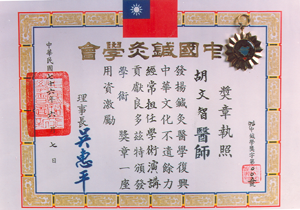 中國鍼灸學會
獎章執照
胡文智醫師
發揚鍼灸醫學復興
中華文化不遺餘力
經常担任學術演講
貢獻良多茲特頒發
學術獎章一座
用資激勵
理事長 吳惠平
中華民國七十六年